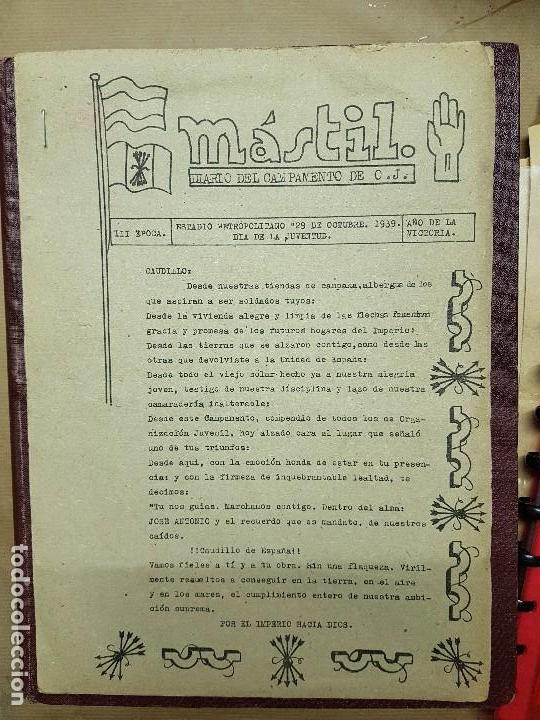 mástil.
DIARIO DEL CAMPAMENTO DE O.J.
III EPOCA.
ESTADIO METROPOLITANO "29 DE OCTUBRE. 1939.
DIA DE LA JUVENTUD.
AÑO DE LA
VICTORIA.
CAUDILLO:
Desde nuestras tiendas de campaña, albergue de los
que aspiran a ser soldados tuyos:
Desde la vivienda alegre y limpia de las flechas femeninas
gracia y promesa de los futuros hogares del Imperio:
Desde las tierras que se alzaron contigo, como desde las
otras que devolviste a la Unidad de España:
Desde todo el viejo solar hecho ya a nuestra alegria
joven, testigo de nuestra disciplina y lazo de nuestra
camaradería inalterable:
Desde este Campamento, compendio de todos los de Orga-
nización Juvenil, hoy alzado cara al lugar que señaló
uno de tus triunfos:
Desde aqui, con la emoción honda de estar en tu presen-
cia: y con la firmeza de inquebrantable lealtad, te
decimos:
"Tu nos guias. Marchamos contigo. Dentro del alma:
JOSE ANTONIO y el recuerdo que es mandato, de nuestros
caídos.
!!Caudillo de España!!
Vamos fieles a tí y a tu obra. Sin una flaqueza. Viril-
mente resueltos a conseguir en la tierra, en el aire
y en los mares, el cumplimiento entero de nuestra ambi-
ción suprema.
POR EL IMPERIO HACIA DIOS.
todocoleccion.net